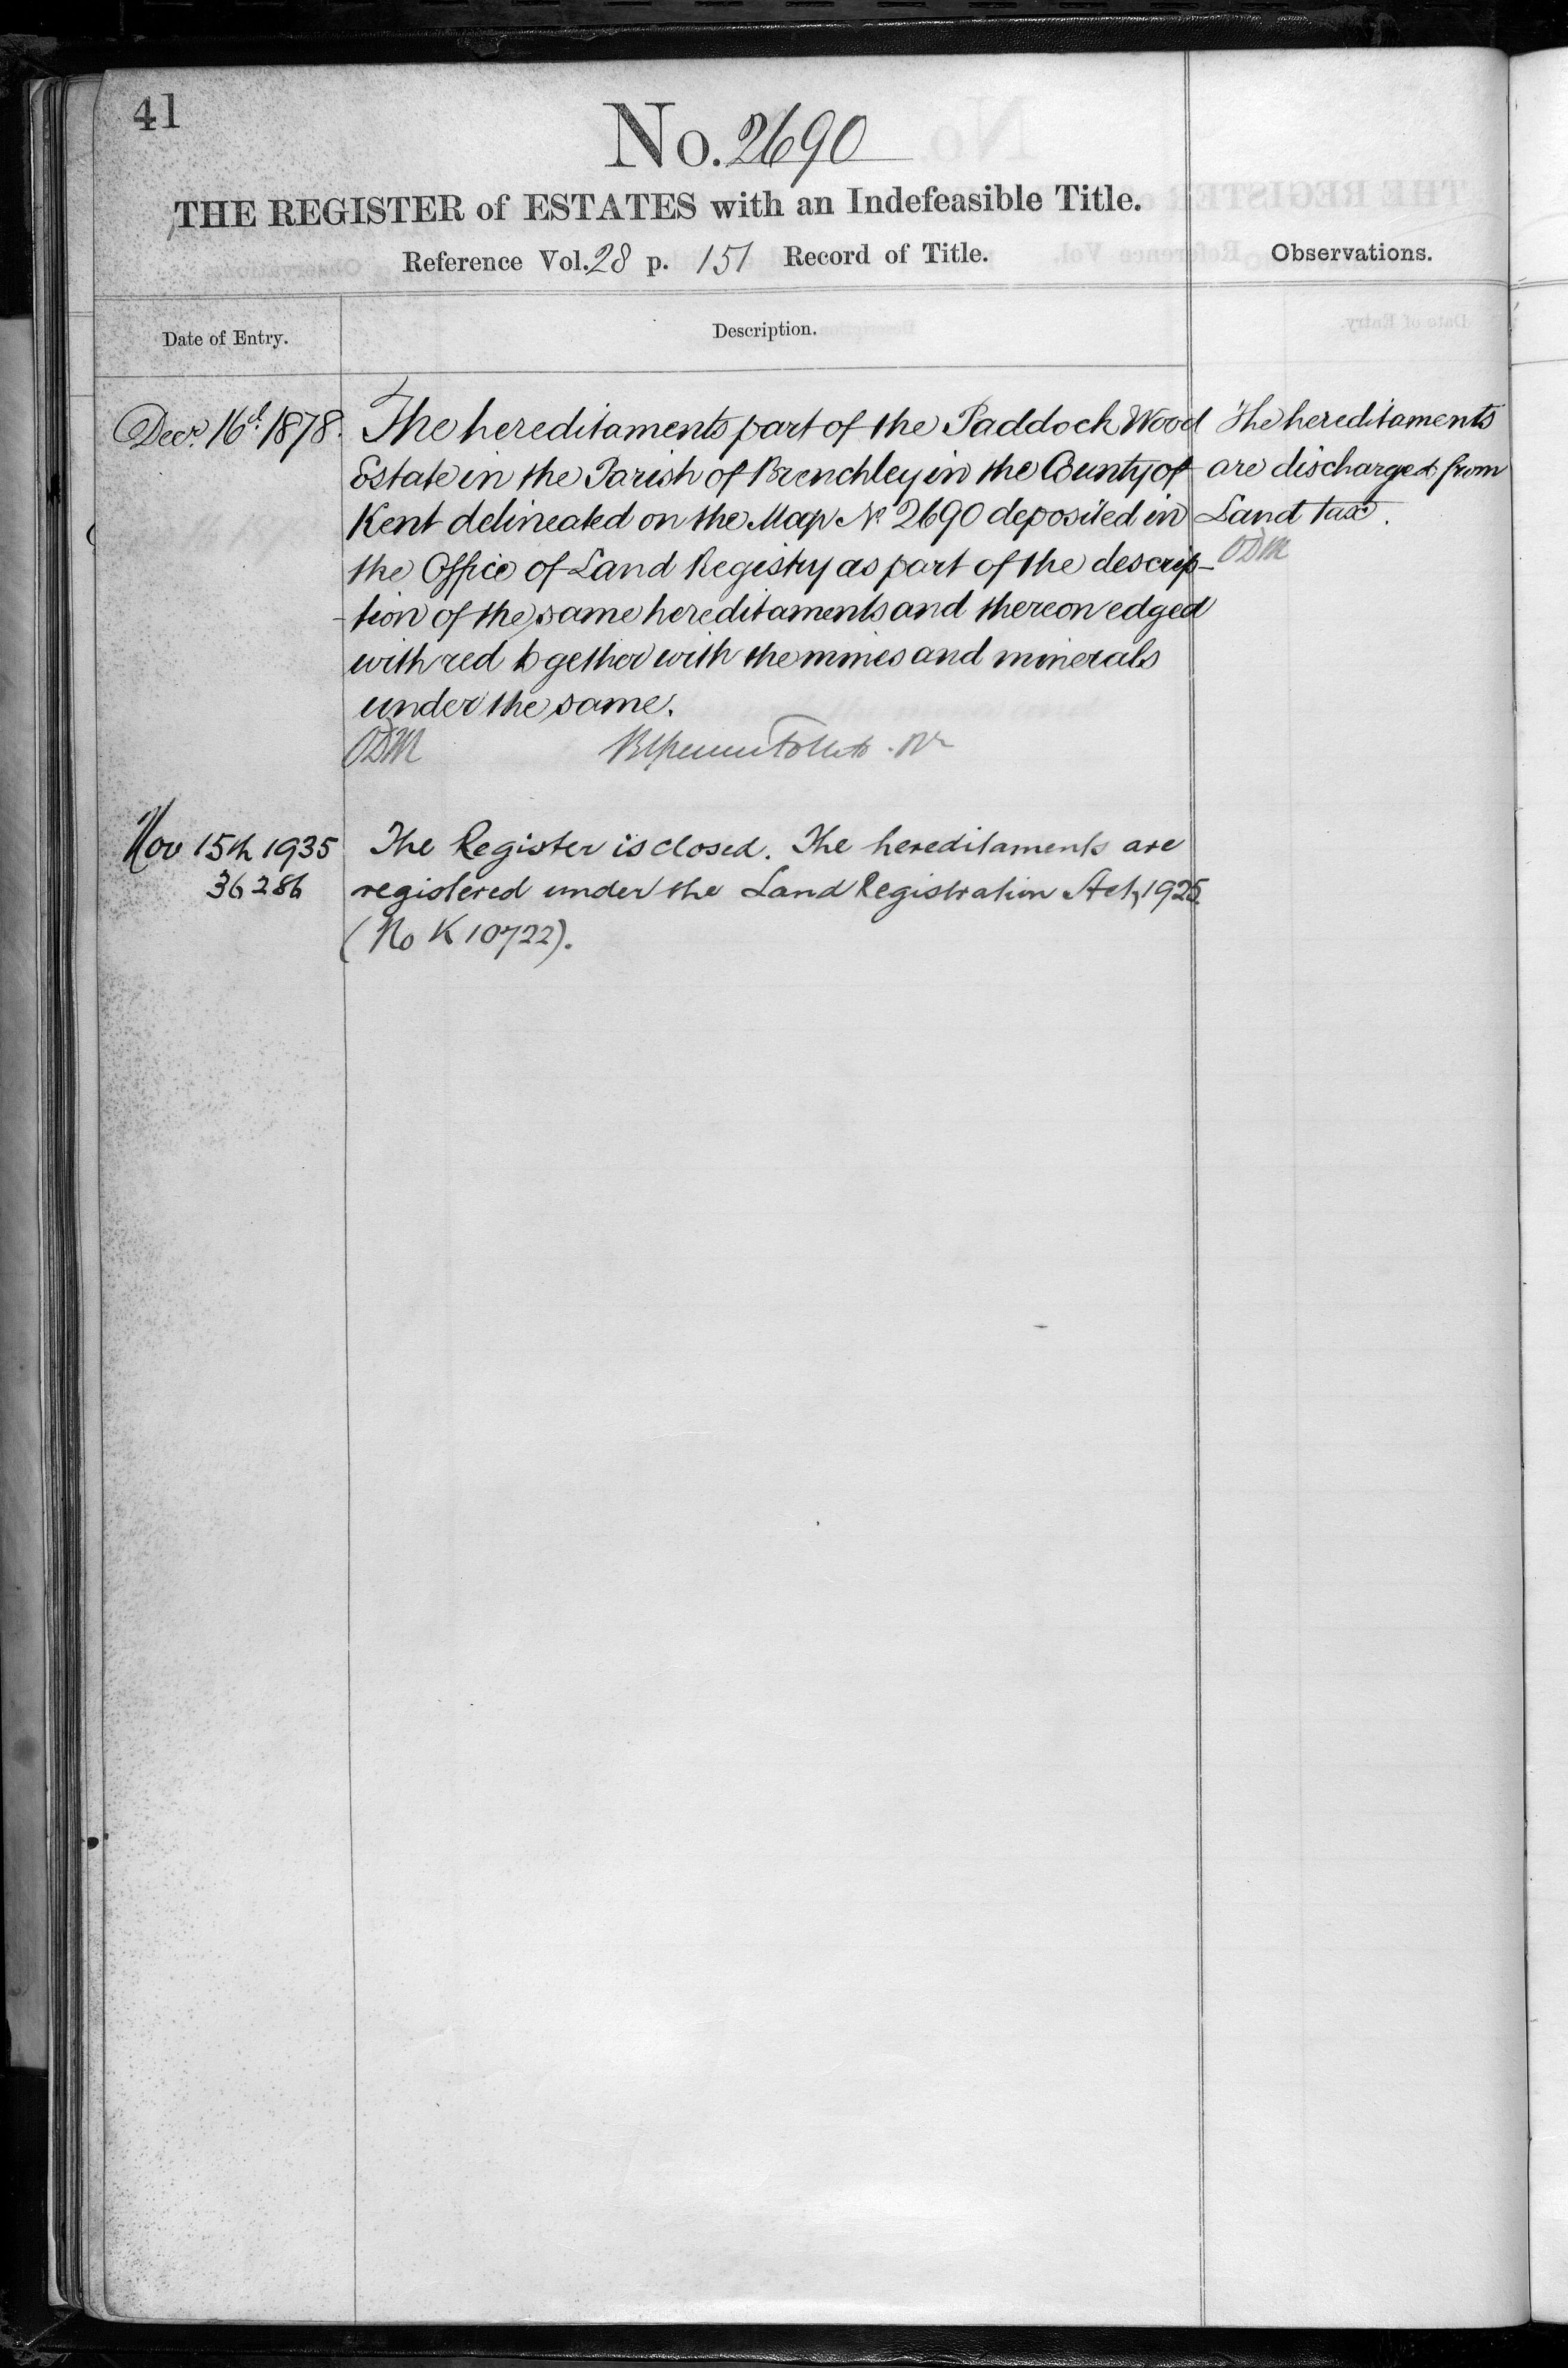 41
No. 2690
THE REGISTER of ESTATES with an Indefeasible Title.
Reference Vol. 28 p. 151 Record of Title.
Observations.
Date of Entry.
Description.
Decr. 16th 1878.
The hereditaments part of the Paddock Wood
Estate in the Parish of Brenchley in the County of
Kent delineated on the Map No 2690 deposited in
the Office of Land Registry as part of the descrip-
-tion of the same hereditaments and thereon edged
with red together with the mines and minerals
under the same.
ODM
The hereditaments
are discharged from
Land tax.
ODM
Nov 15th 1935
36286
The Register is closed. The hereditaments are
registered under the Land Registration Act, 1925.
(No K 10722).